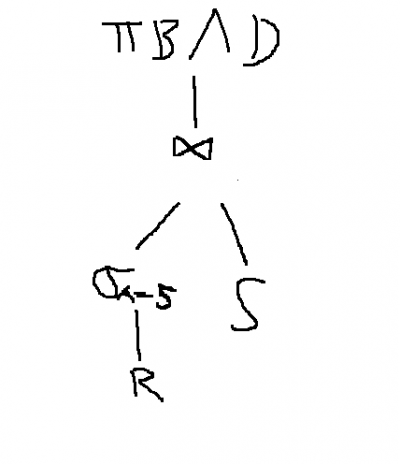 π B ∧ D
⋈
σA=5 S
R